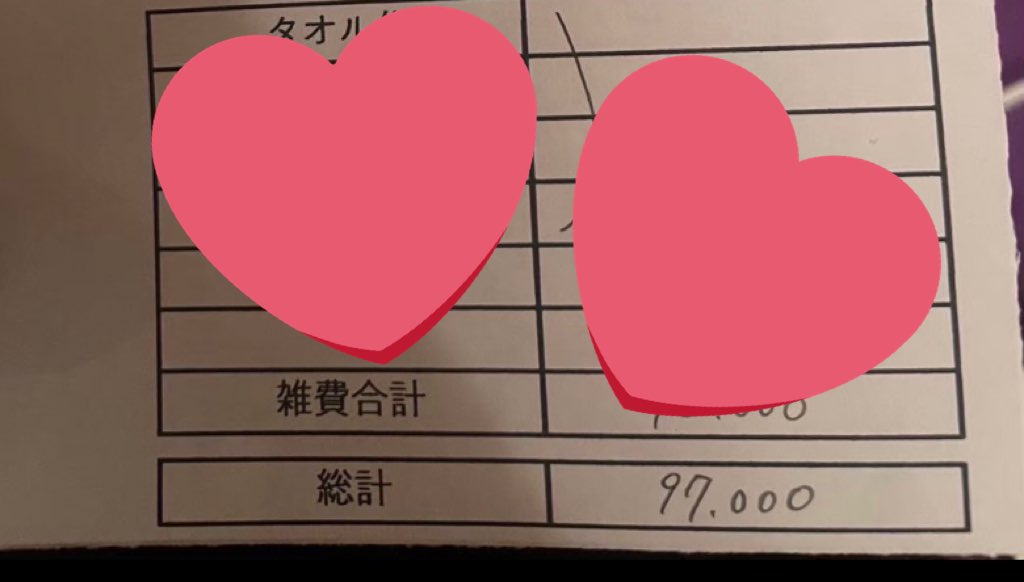 タオル
雑費合計
総計 97.000